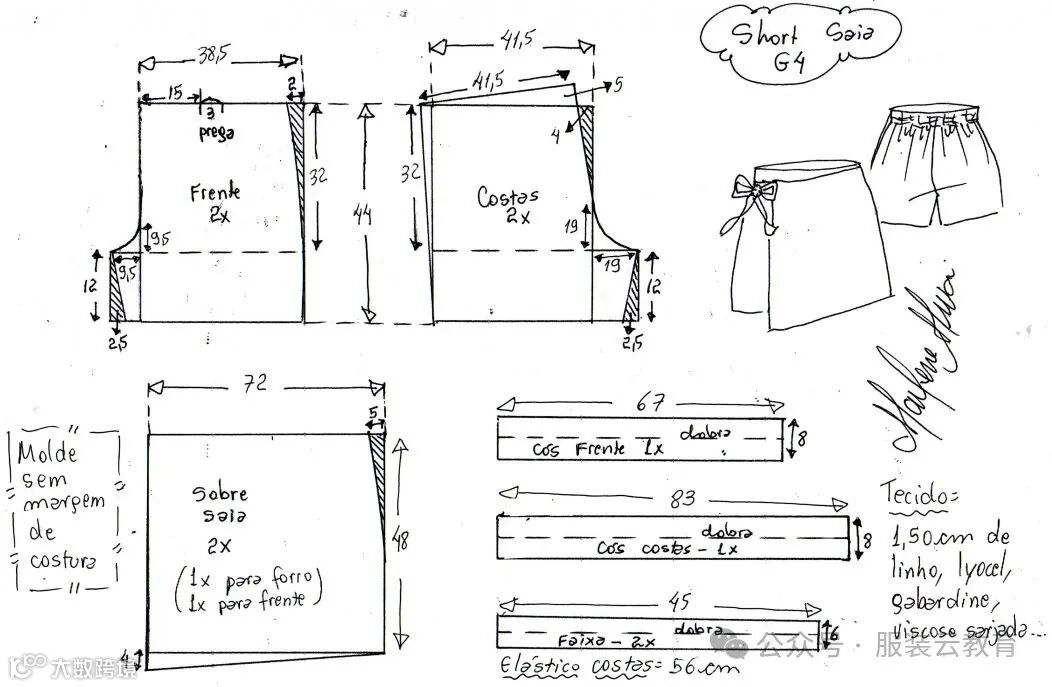 Short Saia
G4
38,5
15
3
prega
2
32
Frente
2x
9,5
9,5
12
2,5
44
41,5
41,5
5
4
32
Costas
2x
19
19
12
2,5
72
5
48
Sobre
saia
2x
(1x para forro
1x para frente)
4
Molde
sem
margem
de
costura
67
dobra
8
Cós Frente 1x
83
dobra
8
Cós costas - 1x
45
dobra
6
Faixa - 2x
Elástico costas = 56.cm
Tecido=
1,50.cm de
linho, lyocel,
gabardine,
viscose sarjada...
公众号 · 服装云教育
大数跨境